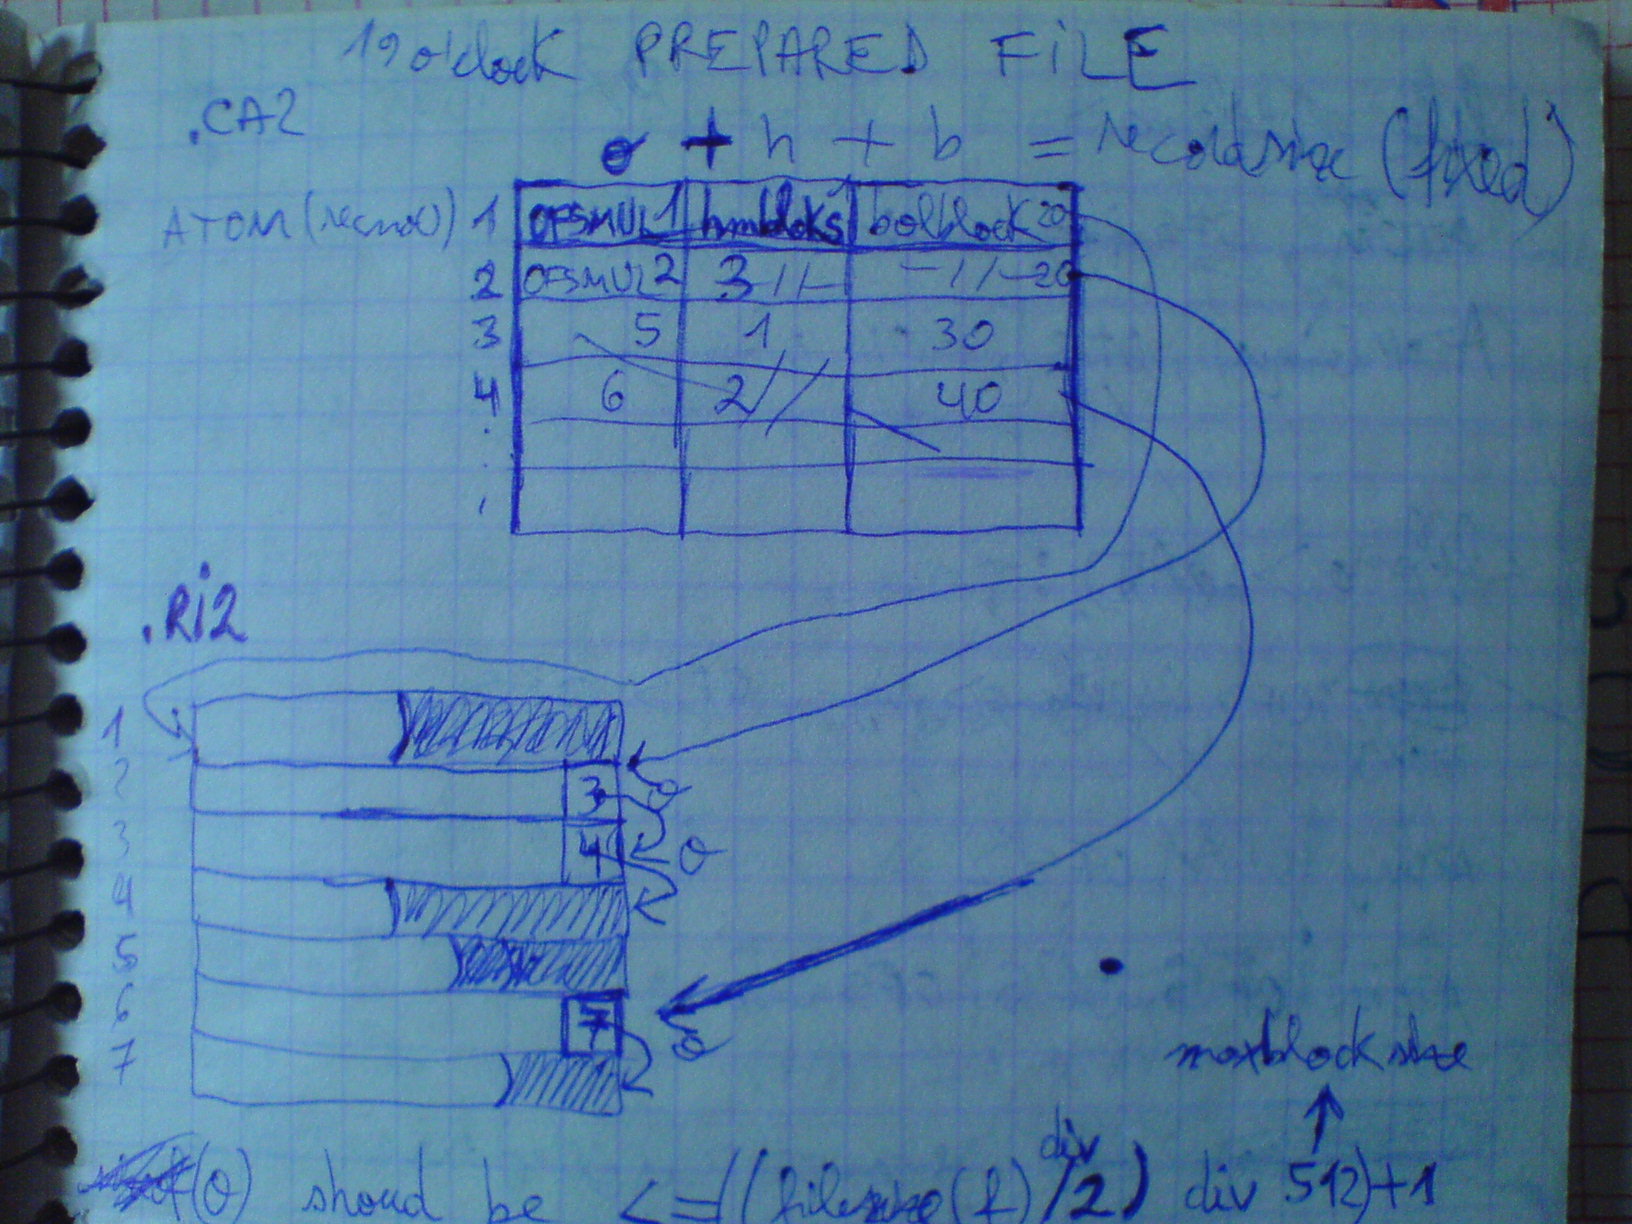 19 o'clock PREPARED FILE
.CA2
o + h + b = recordsize (fixed)
ATOM (recno) 1 OFSMUL 1 hmbloks 1 bolblock 20
2 OFSMUL 2 3 -//- -//- 20
3 5 1 30
4 6 2 // 40
.Ri2
1
2 3 o
3 4 o
4
5
6 7 o
7
maxblocksize
(o) shoud be <= ((filesize(f) div /2) div 512)+1